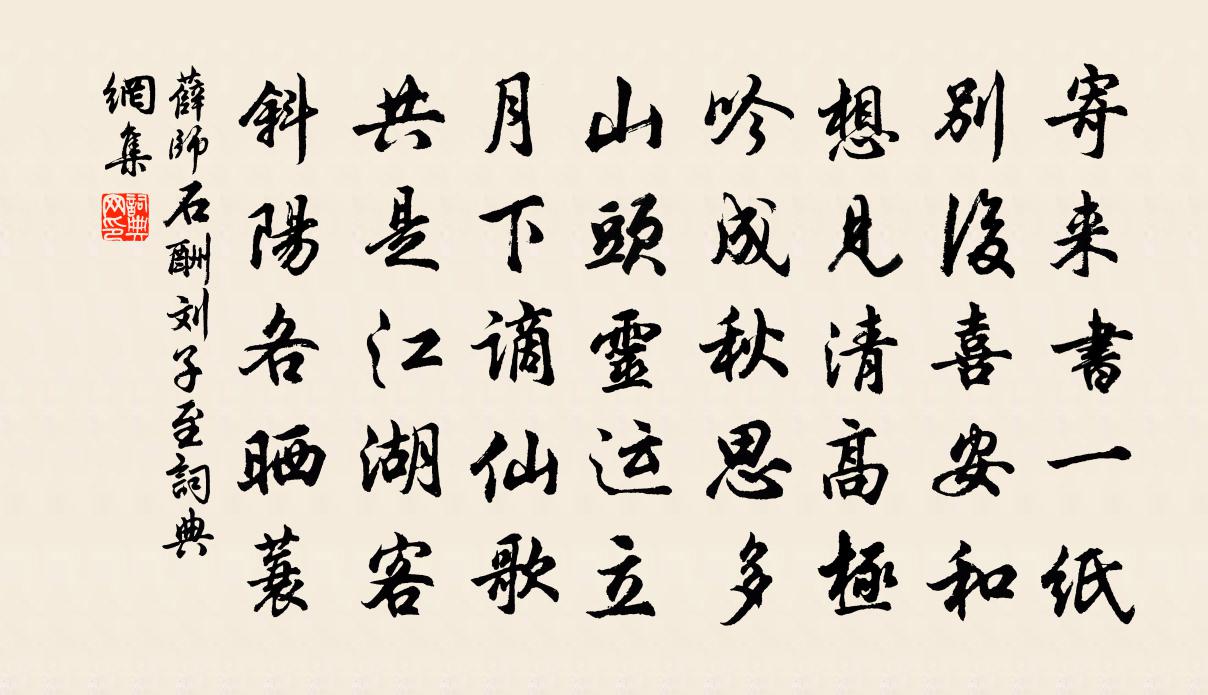 寄来書一紙
別後喜安和
想見清高極
吟成秋思多
山頭靈运立
月下謫仙歌
共是江湖客
斜陽各晒蓑
薛師石酬刘子至詞典
網集
詞典
网印